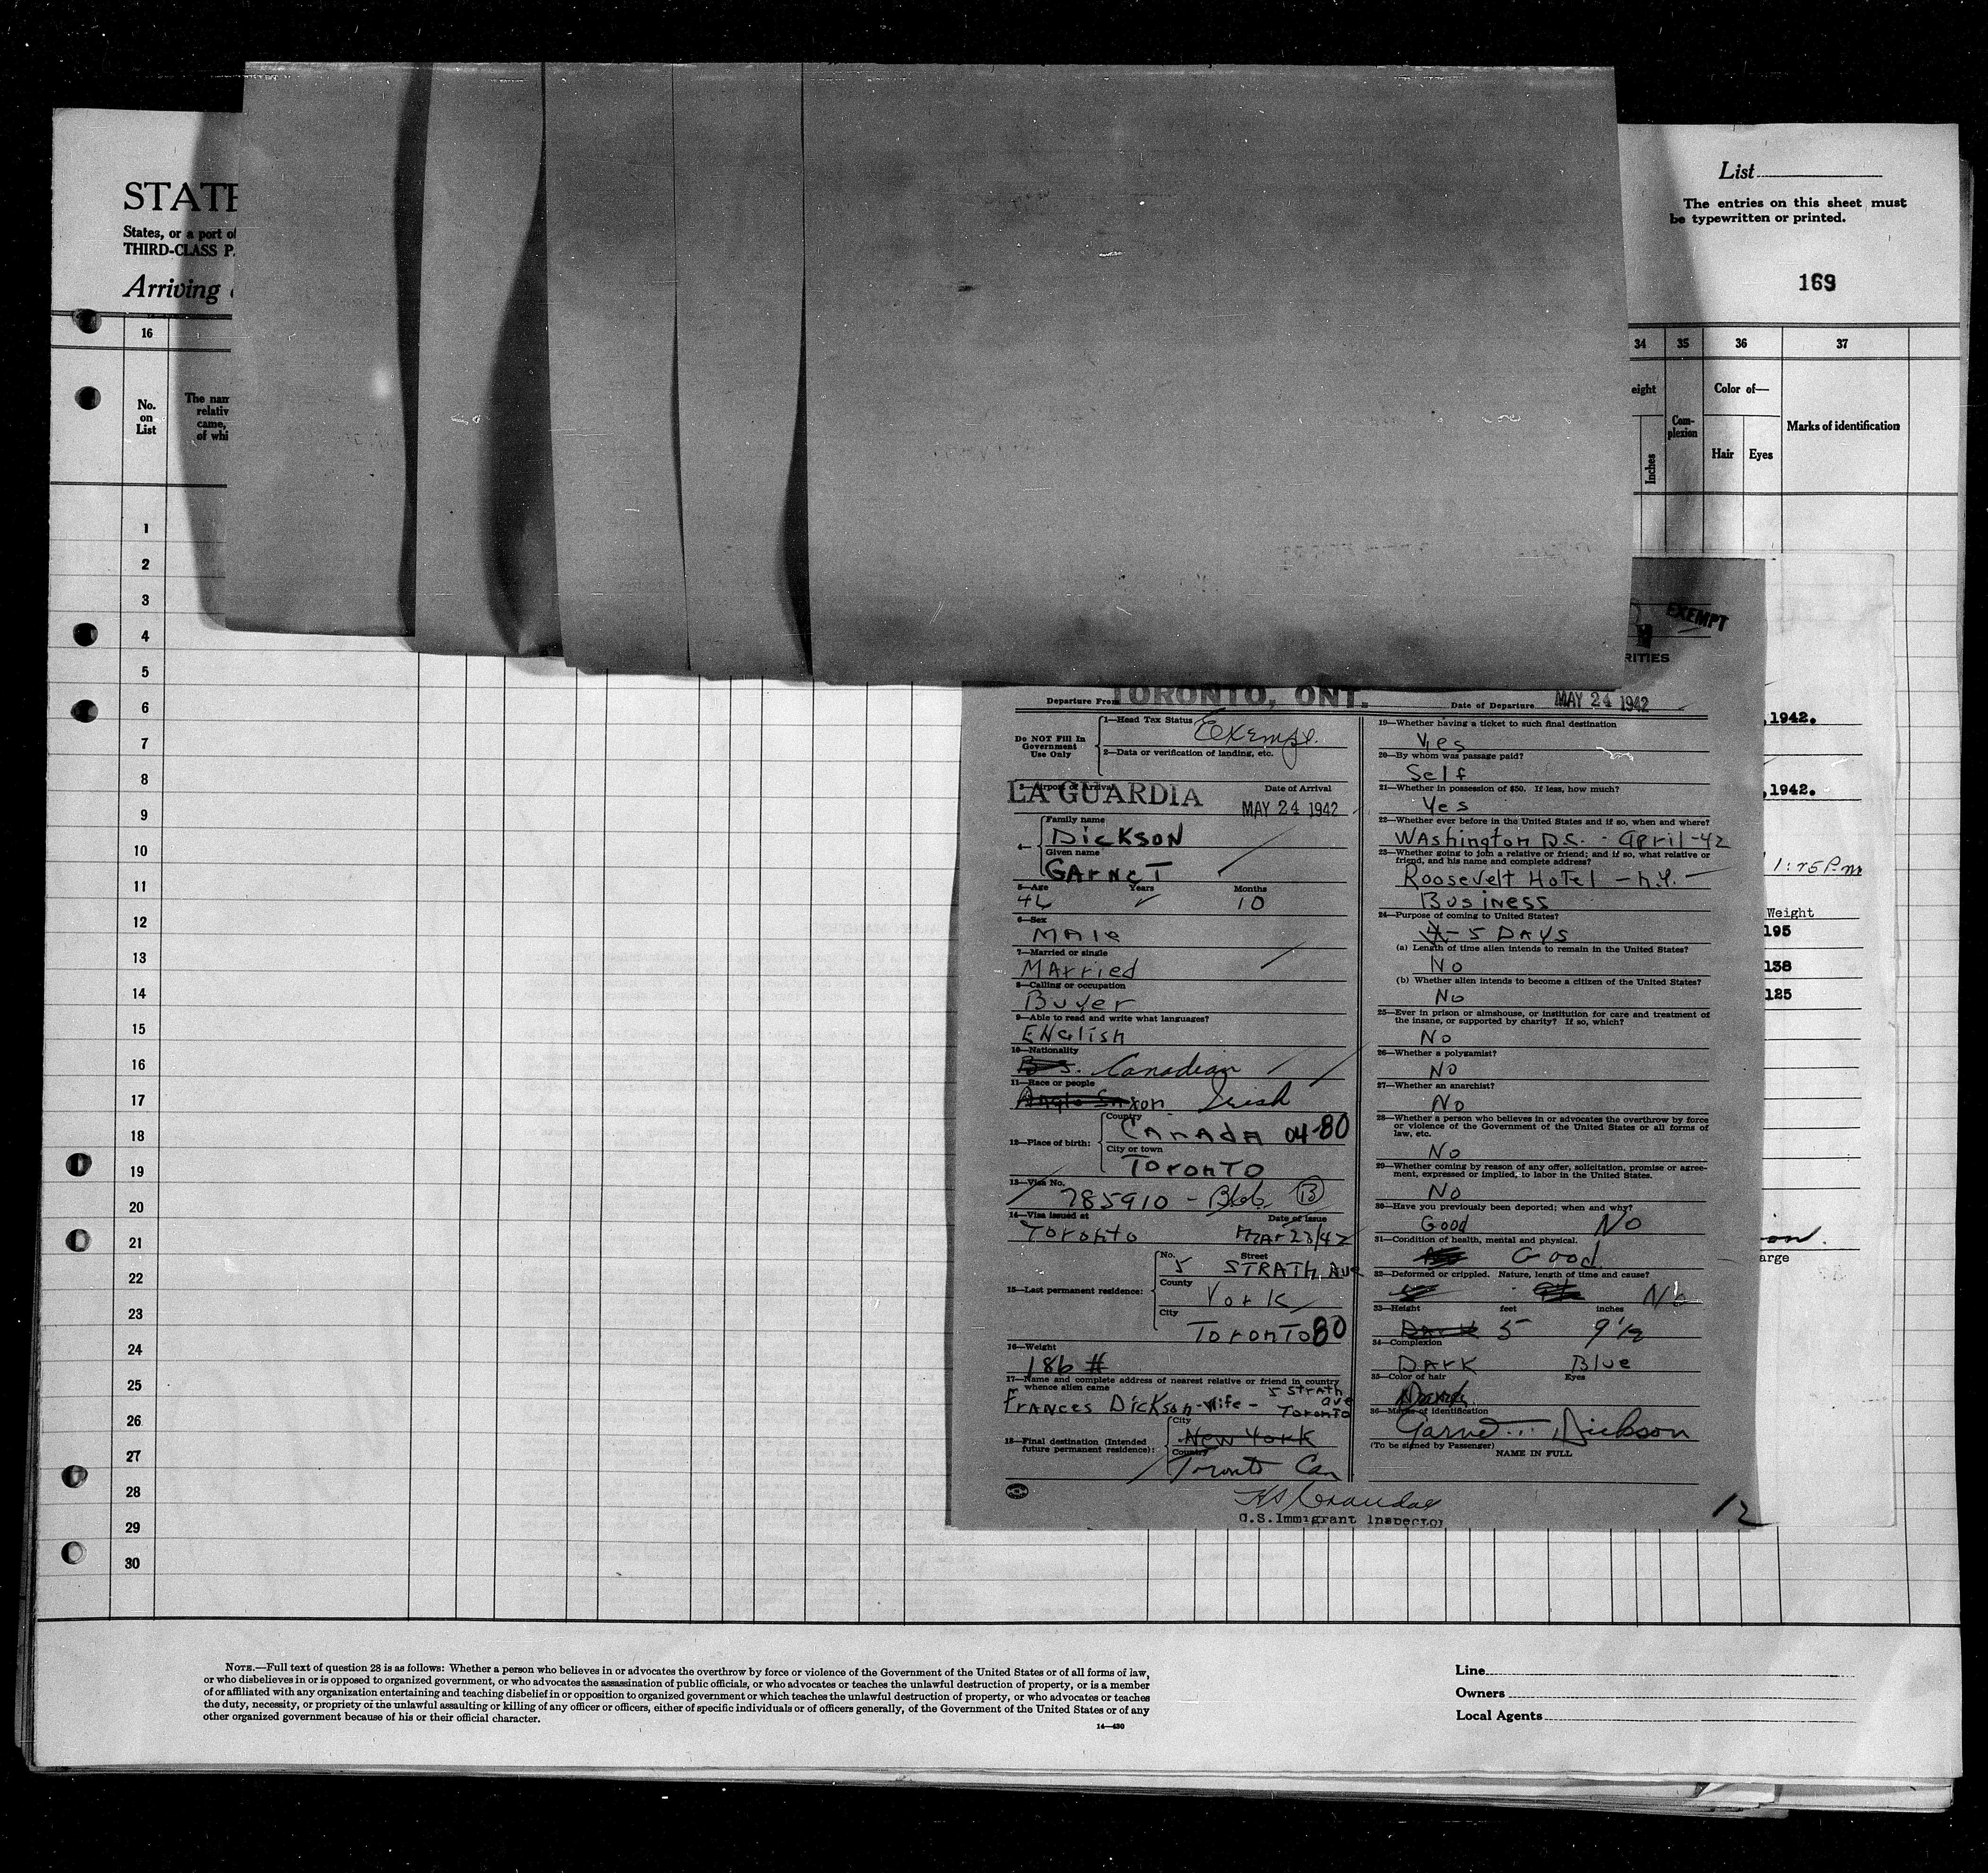 STATE
States, or a port of
THIRD-CLASS P
Arriving
List
The entries on this sheet must
be typewritten or printed.
169
16
34 35 36 37
No.
on
List
The nam
relativ
came,
of whi
eight
Inches
Com-
plexion
Color of—
Hair Eyes
Marks of identification
1
2
3
4
5
6
7
8
9
10
11
12
13
14
15
16
17
18
19
20
21
22
23
24
25
26
27
28
29
30
EXEMPT
RITIES
Departure From TORONTO, ONT.
Date of Departure MAY 24 1942
Do NOT Fill In
Government
Use Only
1—Head Tax Status Exempt.
2—Data or verification of landing, etc.
3—Airport of Arrival Date of Arrival
LA GUARDIA MAY 24 1942
4
Family name
DICKSON
Given name
GARNET
5—Age Years Months
10
6—Sex
MALE
7—Married or single
MArried
8—Calling or occupation
Buyer
9—Able to read and write what languages?
ENGlish
10—Nationality
Canadian
11—Race or people
Anglo Saxon Irish
12—Place of birth:
Country
CANADA 04-80
City or town
Toronto
13—Visa No.
785910 - B
14—Visa issued at Date of Issue
Toronto MAR 23/42
15—Last permanent residence:
No. Street
5 STRATH AVE
County
York
City
Toronto 80
16—Weight
186 #
17—Name and complete address of nearest relative or friend in country
whence alien came
FRANCES DICKSON - Wife - 5 Strath
Ave
Toronto
18—Final destination (Intended
future permanent residence):
City
New York
Country
Toronto Can
19—Whether having a ticket to such final destination
Yes
20—By whom was passage paid?
Self
21—Whether in possession of $50. If less, how much?
Yes
22—Whether ever before in the United States and if so, when and where?
WAshington D.C. - April -42
23—Whether going to join a relative or friend; and if so, what relative or
friend, and his name and complete address?
Roosevelt Hotel - N.Y.
Business
24—Purpose of coming to United States?
4-5 DAYS
(a) Length of time alien intends to remain in the United States?
No
(b) Whether alien intends to become a citizen of the United States?
No
25—Ever in prison or almshouse, or institution for care and treatment of
the insane, or supported by charity? If so, which?
No
26—Whether a polygamist?
No
27—Whether an anarchist?
No
28—Whether a person who believes in or advocates the overthrow by force
or violence of the Government of the United States or all forms of
law, etc.
No
29—Whether coming by reason of any offer, solicitation, promise or agree-
ment, expressed or implied, to labor in the United States.
No
30—Have you previously been deported; when and why?
Good No
31—Condition of health, mental and physical.
Good
32—Deformed or crippled. Nature, length of time and cause?
No
33—Height feet inches
Dark 5 9 1/2
34—Complexion
DARK Blue
35—Color of hair Eyes
36—Marks of identification
Garnet Dickson
(To be signed by Passenger) NAME IN FULL
U.S. Immigrant Inspector
12
, 1942.
, 1942.
Weight
195
138
125
on.
arge
NOTE.—Full text of question 28 is as follows: Whether a person who believes in or advocates the overthrow by force or violence of the Government of the United States or of all forms of law,
or who disbelieves in or is opposed to organized government, or who advocates the assassination of public officials, or who advocates or teaches the unlawful destruction of property, or is a member
of or affiliated with any organization entertaining and teaching disbelief in or opposition to organized government or which teaches the unlawful destruction of property, or who advocates or teaches
the duty, necessity, or propriety of the unlawful assaulting or killing of any officer or officers, either of specific individuals or of officers generally, of the Government of the United States or of any
other organized government because of his or their official character.
14—430
Line
Owners
Local Agents